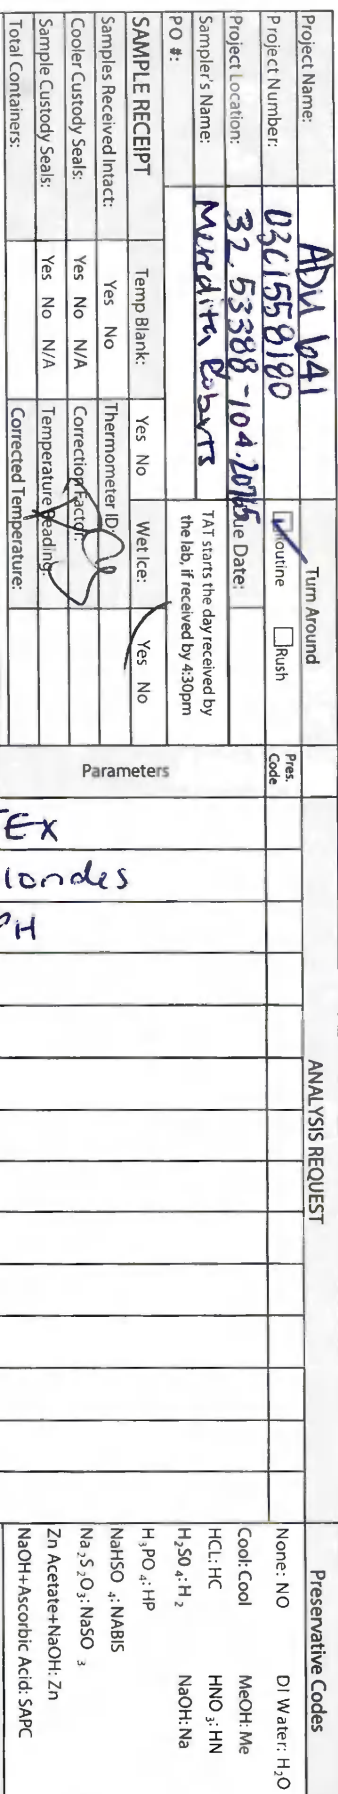 Project Name: ADU 641 Turn Around
Project Number: 03C1558180 Routine Rush Pres. Code
Project Location: 32.53388,-104.20765 Due Date:
Sampler's Name: Meredith Roberts TAT starts the day received by
PO #: the lab, if received by 4:30pm
SAMPLE RECEIPT Temp Blank: Yes No Wet Ice: Yes No
Samples Received Intact: Yes No Thermometer ID:
Cooler Custody Seals: Yes No N/A Correction Factor:
Sample Custody Seals: Yes No N/A Temperature Reading:
Total Containers: Corrected Temperature:
Parameters
ANALYSIS REQUEST
TEX
lorides
PH
Preservative Codes
None: NO DI Water: H2O
Cool: Cool MeOH: Me
HCL: HC HNO3: HN
H2SO4: H2 NaOH: Na
H3PO4: HP
NaHSO4: NABIS
Na2S2O3: NaSO3
Zn Acetate+NaOH: Zn
NaOH+Ascorbic Acid: SAPC